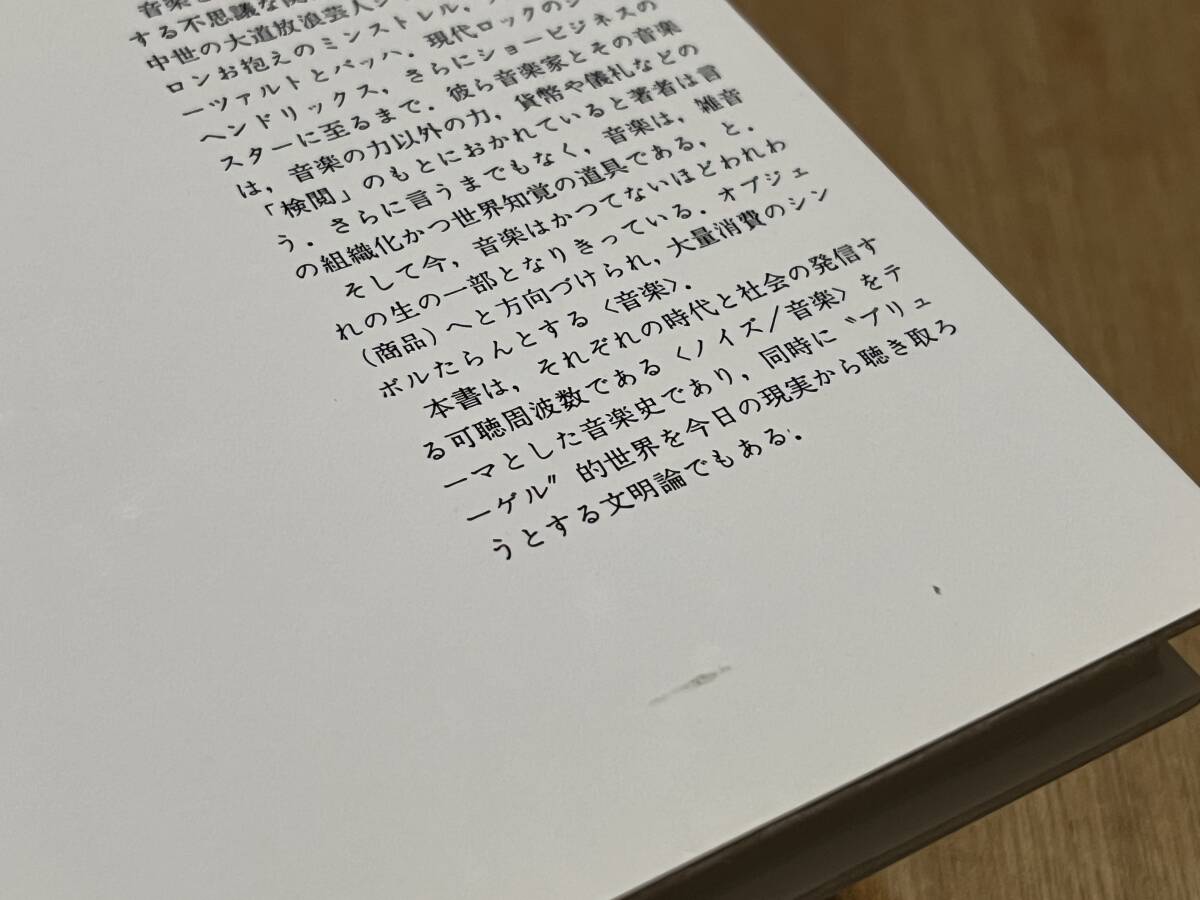 音楽と
する不思議な関
中世の大道放浪芸人ジ
ロンお抱えのミンストレル,
ーツァルトとバッハ. 現代ロックのジ
ヘンドリックス, さらにショービジネスの
スターに至るまで. 彼ら音楽家とその音楽
は, 音楽の力以外の力, 貨幣や儀礼などの
「検閲」のもとにおかれていると著者は言
う. さらに言うまでもなく, 音楽は, 雑音
の組織化かつ世界知覚の道具である, と.
そして今, 音楽はかつてないほどわれわ
れの生の一部となりきっている. オブジェ
(商品)へと方向づけられ, 大量消費のシン
ボルたらんとする〈音楽〉.
本書は, それぞれの時代と社会の発信す
る可聴周波数である〈ノイズ/音楽〉をテ
ーマとした音楽史であり, 同時に〝ブリュ
ーゲル〟的世界を今日の現実から聴き取ろ
うとする文明論でもある.